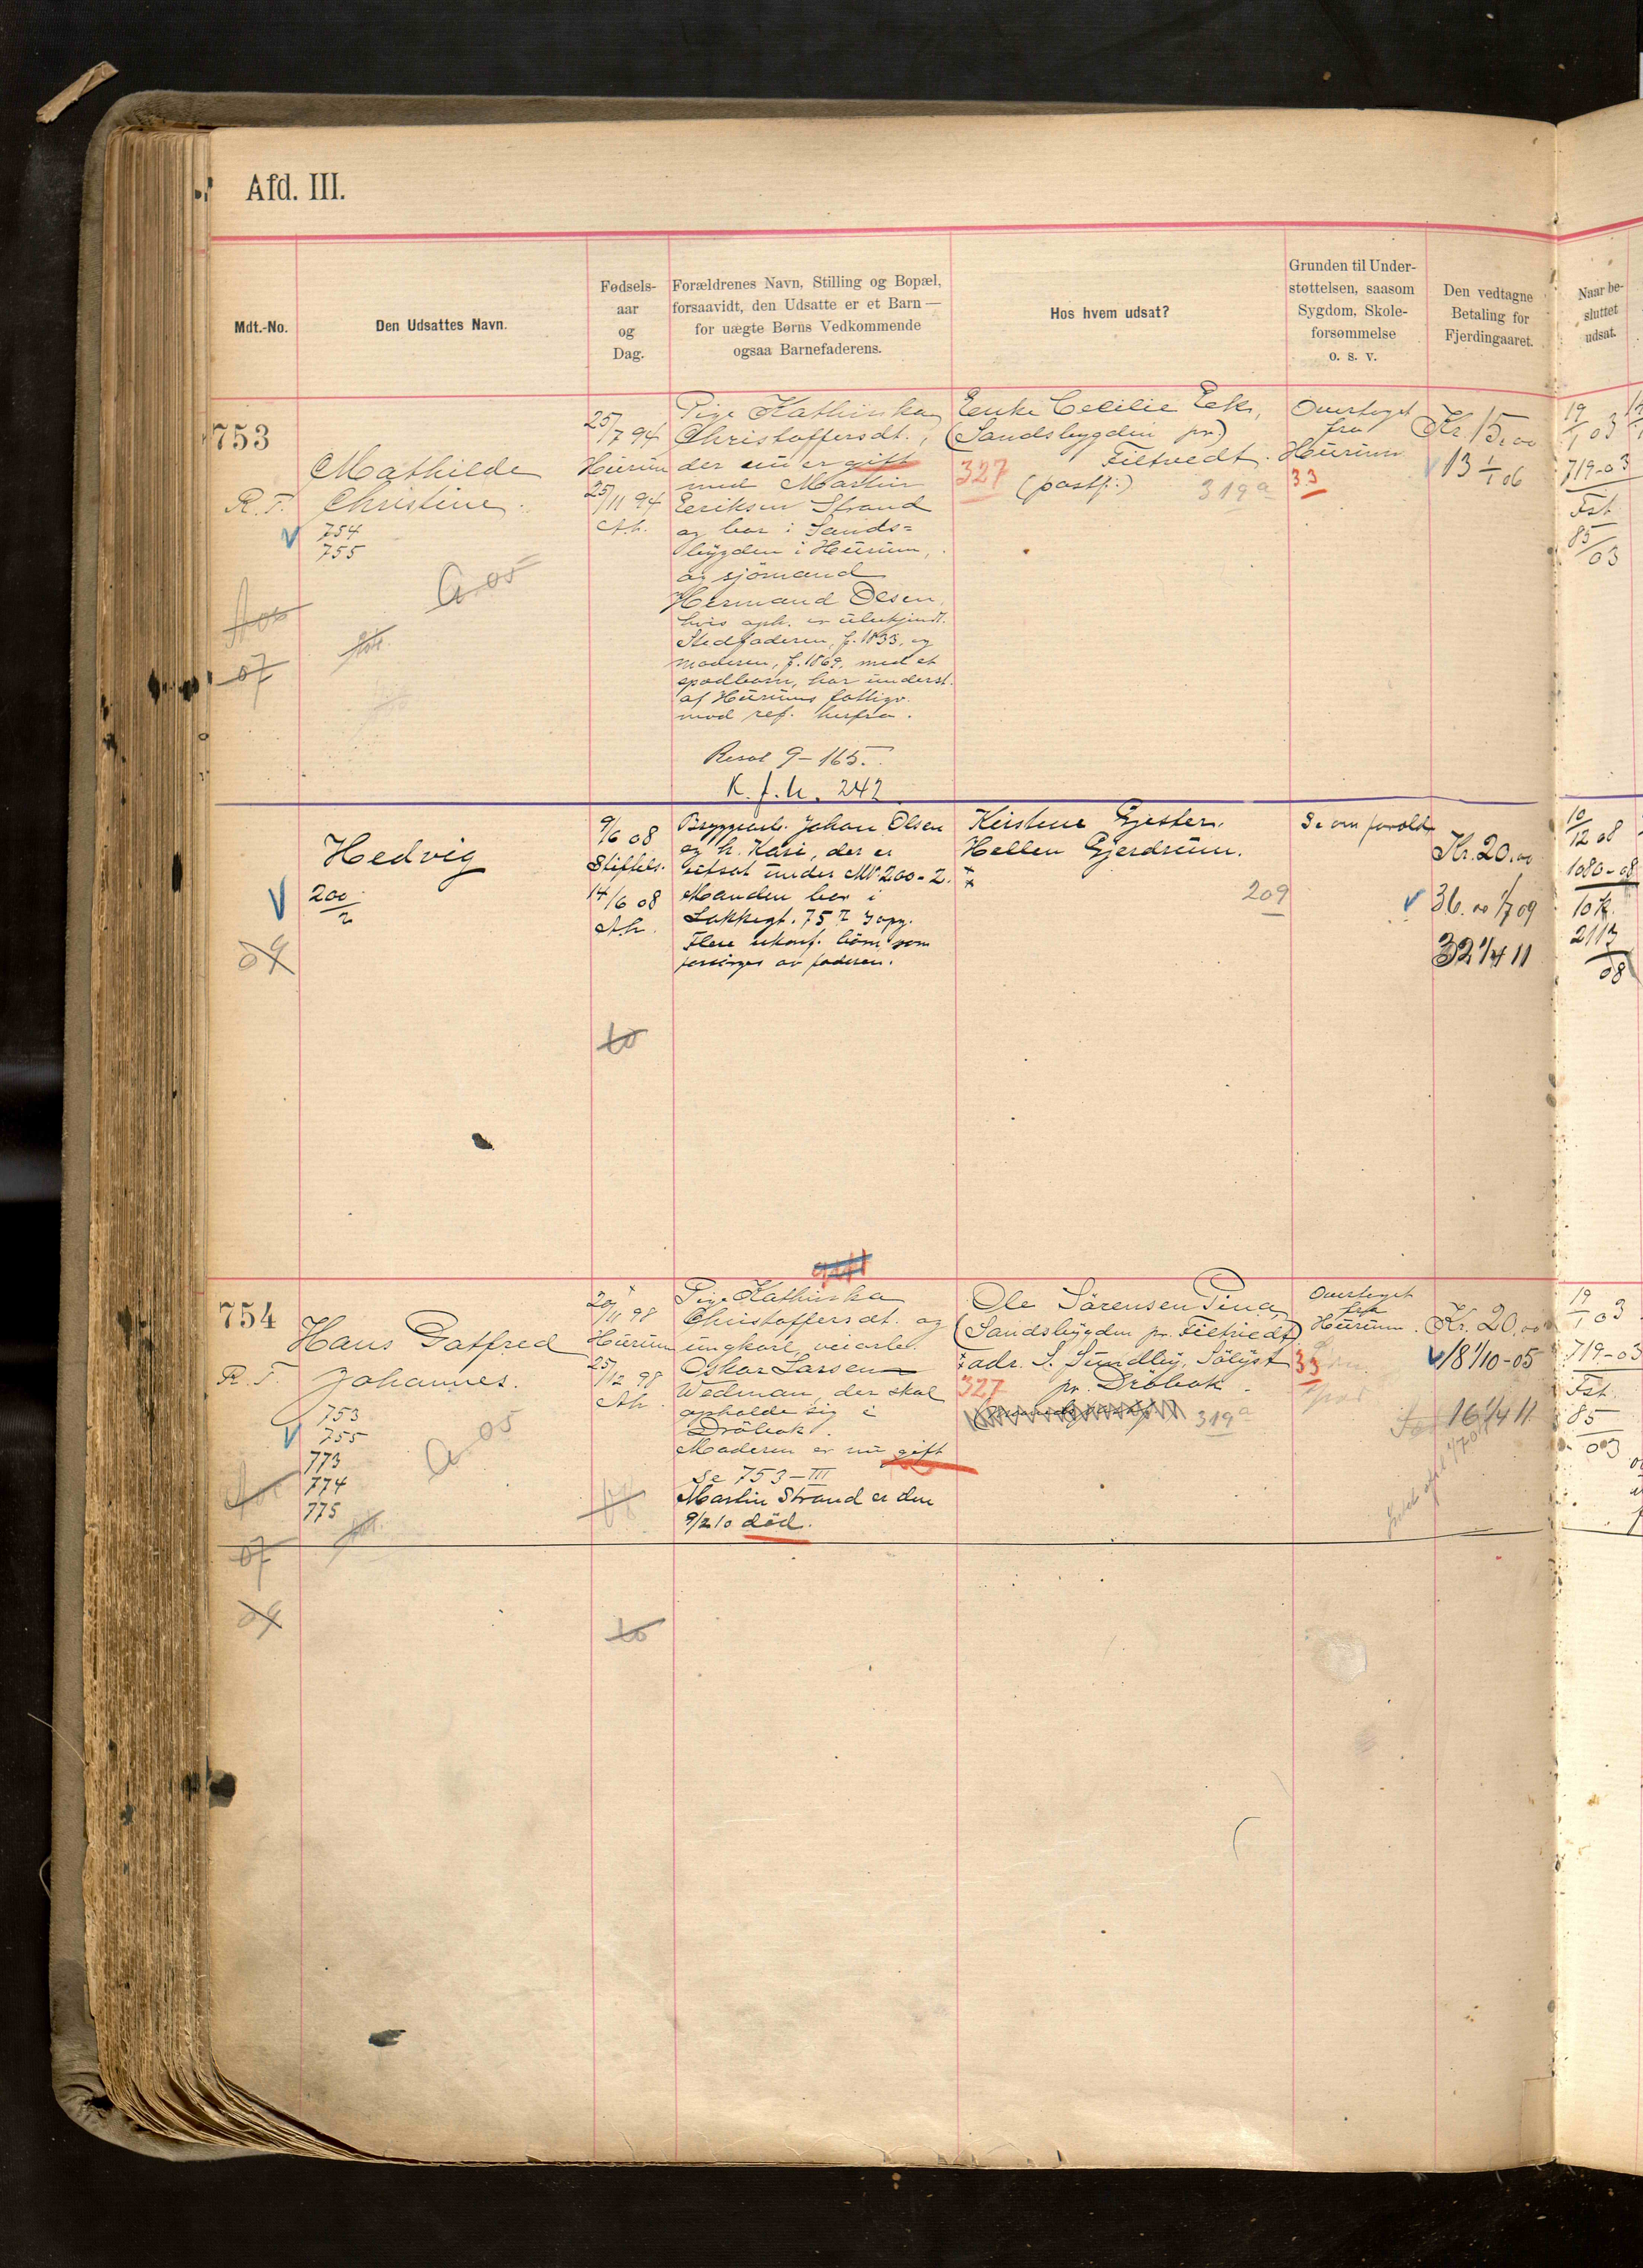 Afd. III.
Mdt.-No.
Den Udsattes Navn.
Fødsels-
aar
og
Dag.
Forældrenes Navn, Stilling og Bopæl,
forsaavidt, den Udsatte er et Barn —
for uægte Børns Vedkommende
ogsaa Barnefaderens.
Hos hvem udsat?
Grunden til Under-
støttelsen, saasom
Sygdom, Skole-
forsømmelse
o. s. v.
Den vedtagne
Betaling for
Fjerdingaaret.
Naar be-
sluttet
udsat.
753
R. F.
07
Mathilde
Christine.
754
755
a 05
25/7 94
Hurum
25/11 94
A.k.
Pige Kathinka
Christoffersdt.,
der nu er gift
med Martin
Eriksen Strand
og bor i Sands=
bygden i Hurum,
og sjömand
Hermand Olsen,
hvis oph. er ubekjendt.
Stedfaderen, f. 1833, og
moderen, f. 1869, med et
spædbarn, har underst.
af Hurums fattigv.
mod ref. herfra.
Resol 9-165.
K. f. h. 242
Enke Cecilie Eek,
(Sandsbygden pr.)
Filtvedt.
327 (postf.) 319a
Overtaget
fra
Hurum
33
Kr. 15,00
13 1/1 06
19/1 03
719-03
Fst.
85/03
Hedvig
200/2
09
9/6 08
Stiftels.
14/6 08
A.k.
to
Bryggearb. Johan Olsen
og h. Kasi, der er
utsat under M.200-2.
Manden bor i
Lakkegt. 75 I opg.
Flere ukonf. börn som
forsörges av faderen.
Kirstine Gjester.
Hellen Gjerdrum.
209
Se om forældr
Kr. 20.00
36.00 1/7 09
32 1/4 11
10/12 08
1080-08
10 K.
2113/08
gift
754
R. F.
07
09
Hans Gotfred
Johannes.
753
755
773
774
775
a 05
20/11 98
Hurum
25/12 98
Ak.
to
Pige Kathinka
Christoffersdt. og
ungkarl, veiarb.
Oskar Larsen
Wedman, der skal
opholde sig i
Dröbak.
Moderen er nu gift
Se 753-III
Martin Strand er den
9/2 10 död.
Ole Sörensen Tina,
(Sandsbygden pr. Filtvedt)
adr. S. Sundby, Sölyst
327 pr. Dröbak.
319a
Overtaget
fra
Hurum.
33
Kr. 20,00
18 1/10-05
16 1/4 11
19/1 03
719-03
Fst.
85
03